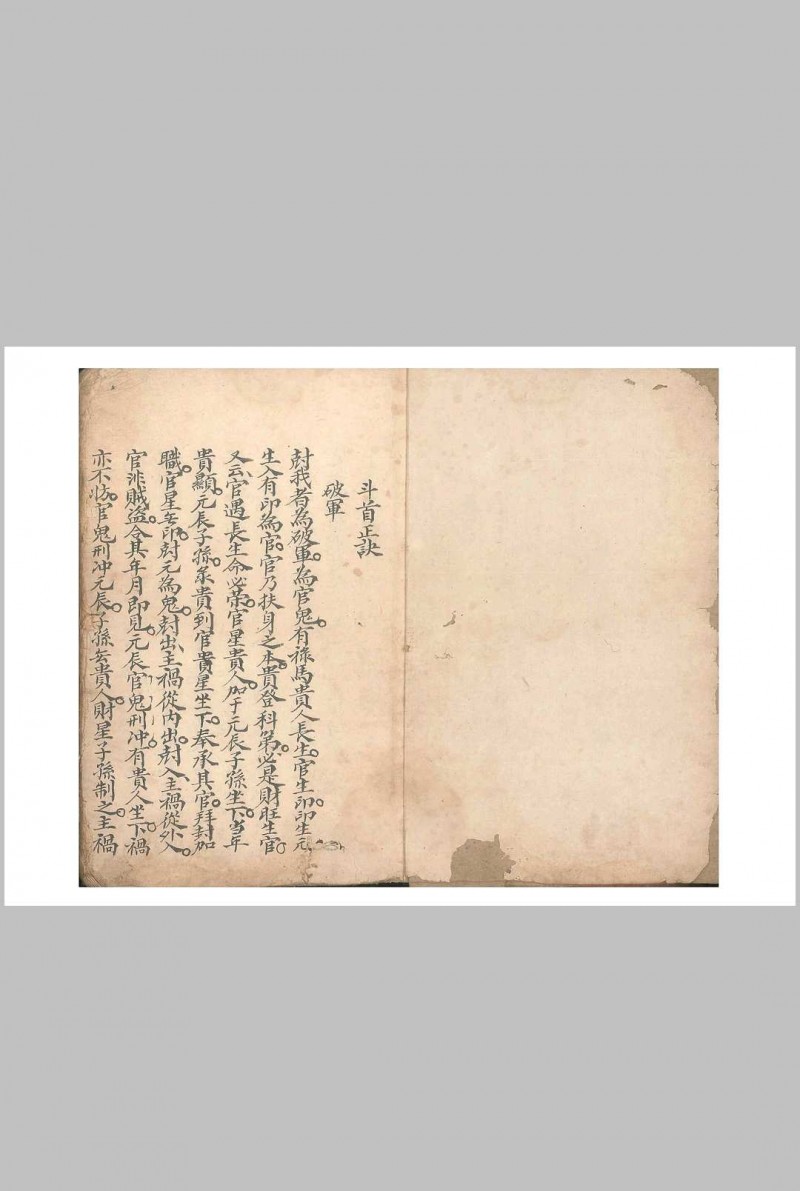 斗首正訣
破軍
尅我者為破軍。為官鬼。有祿馬貴人長生。官生印。印生元
生入有印為官。官乃扶身之本。貴登科第。必是財旺生官。
又云、官遇長生命必荣。官星貴人加于元辰子孫坐下。当年
貴顯。元辰子孫。貴到官貴星坐下。奉承其官。拜封加
職。官星無印。尅元為鬼。尅出、主禍從内出。尅入、主禍從外入。
官非賊盗。令其年月即見。元辰官鬼刑冲。有貴人坐下。禍
亦不妨。官鬼刑冲元辰。子孫無貴人。財星子孫制之。主禍